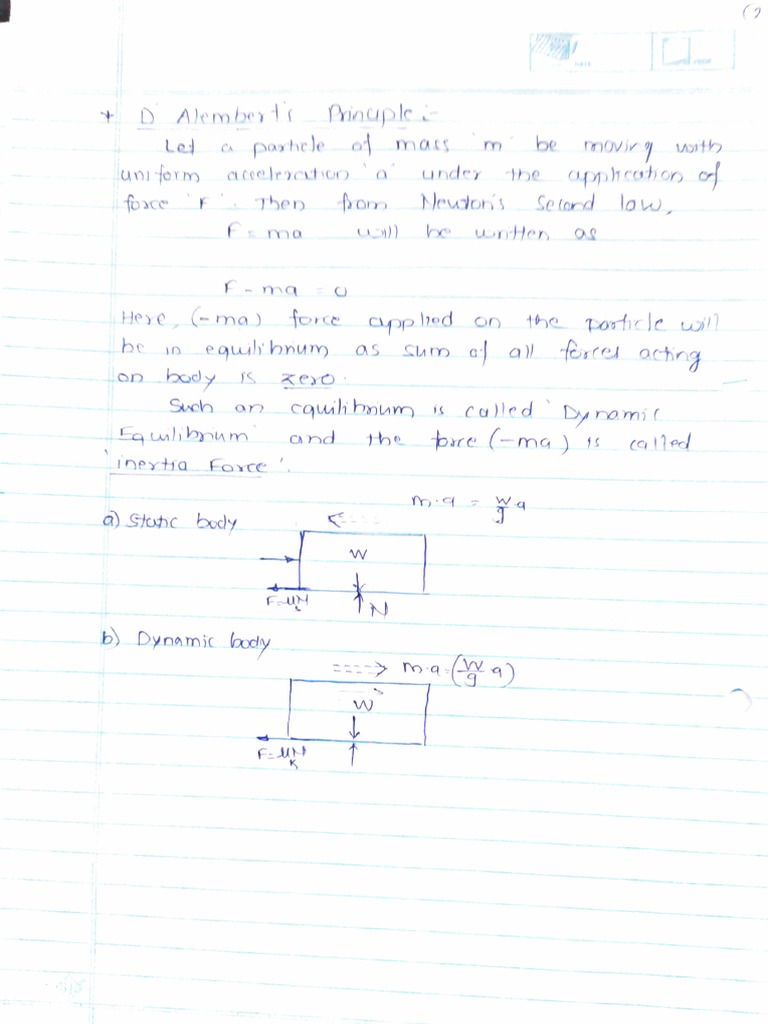 * D'Alembert's Principle :-
Let a particle of mass 'm' be moving with
uniform acceleration 'a' under the application of
force 'F'. Then from Newton's Second law,
F = ma will be written as
F - ma = 0
Here, (-ma) force applied on the particle will
be in equilibrium as sum of all forces acting
on body is zero.
Such an equilibrium is called 'Dynamic
Equilibrium' and the force (-ma) is called
'inertia Force'.
m·a = W/g a
a) Static body
W
F=μsN
N
b) Dynamic body
m·a = (W/g a)
W
F=μkN